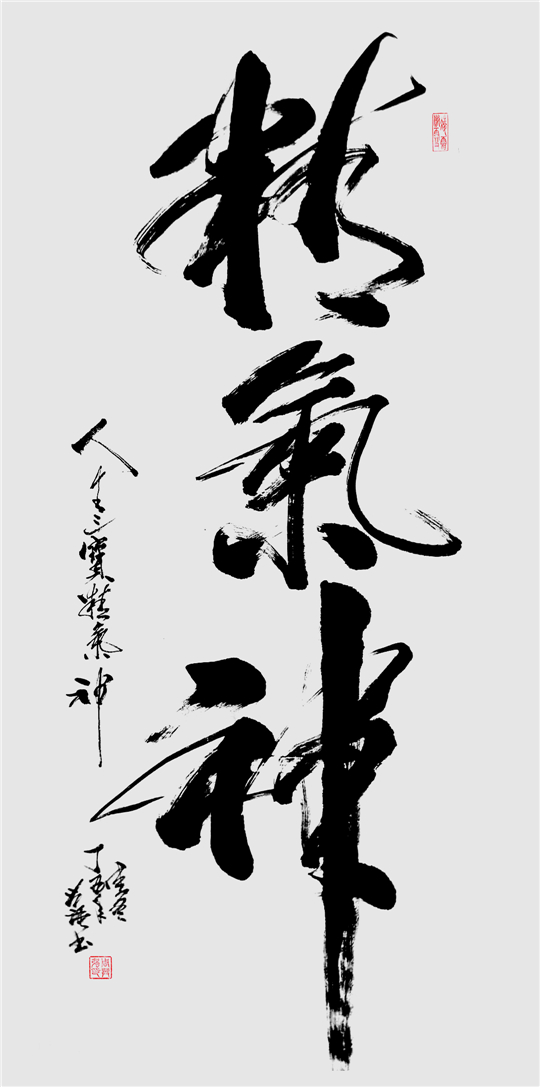 精氣神
人生三寶精氣神
丁酉年
書